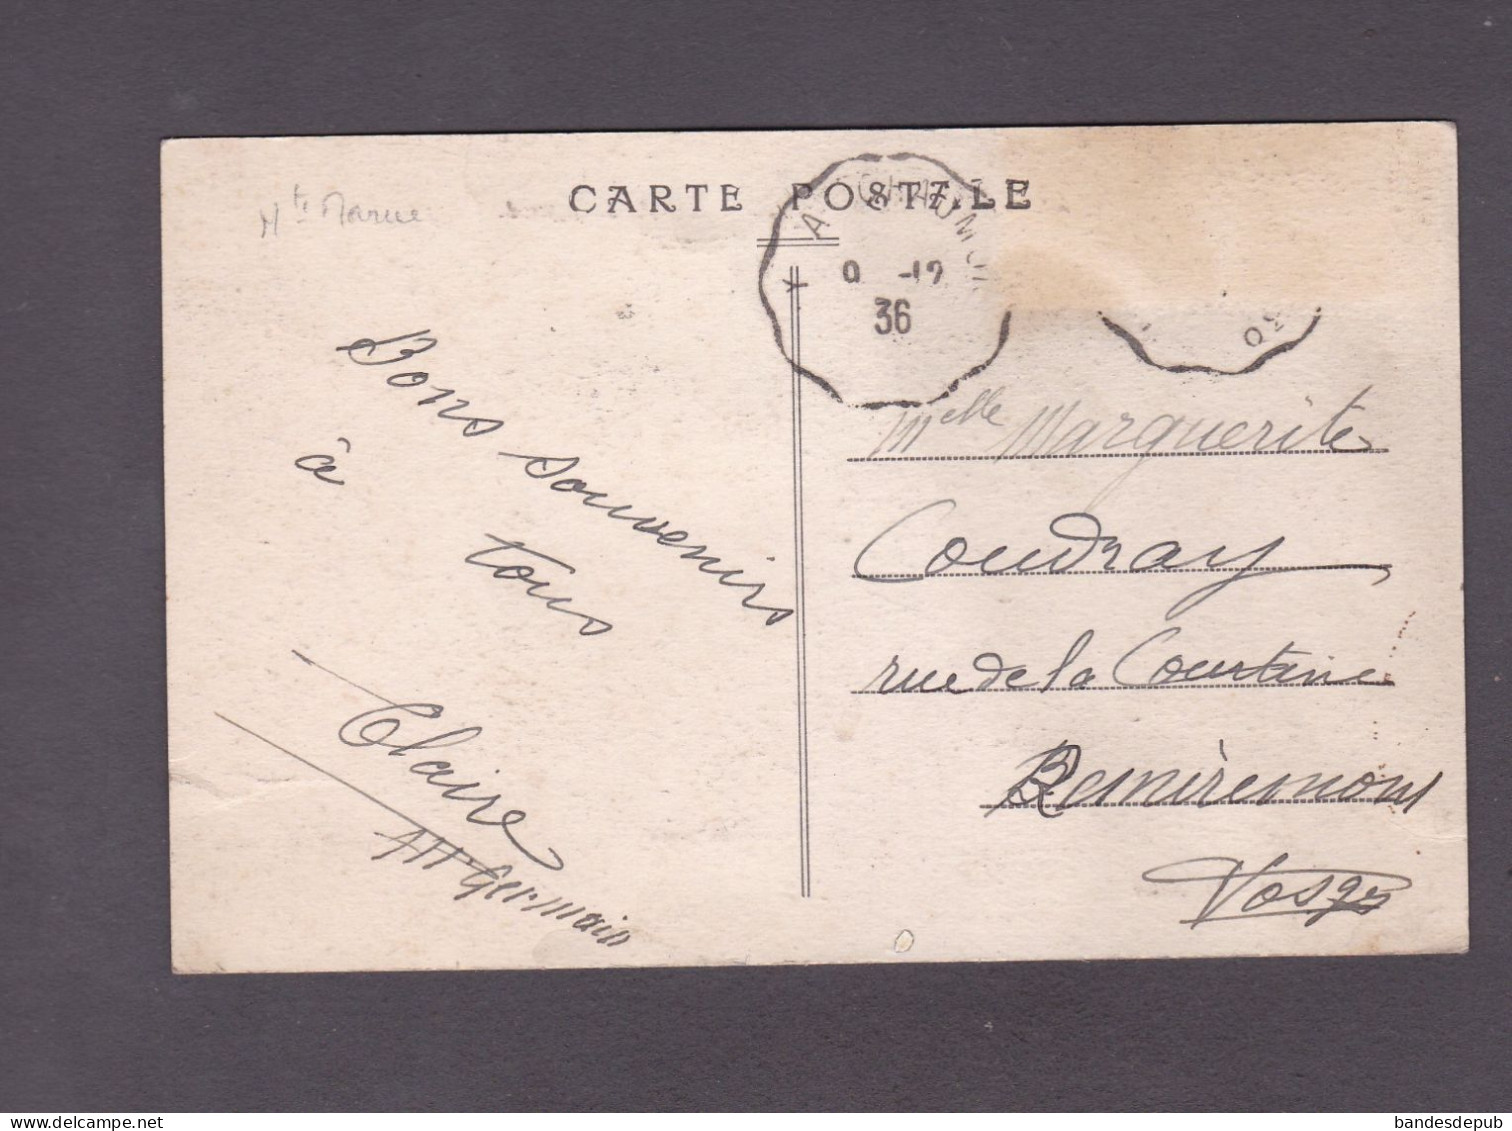 Hte Marne
CARTE POSTALE
A CHAUMO
Y
9 -12
36
Bons souvenirs
à
tous
Claire
Germain
Melle Marguerite
Coudray
rue de la Courtine
Remiremont
Vosges
www.delcampe.net
bandesdepub